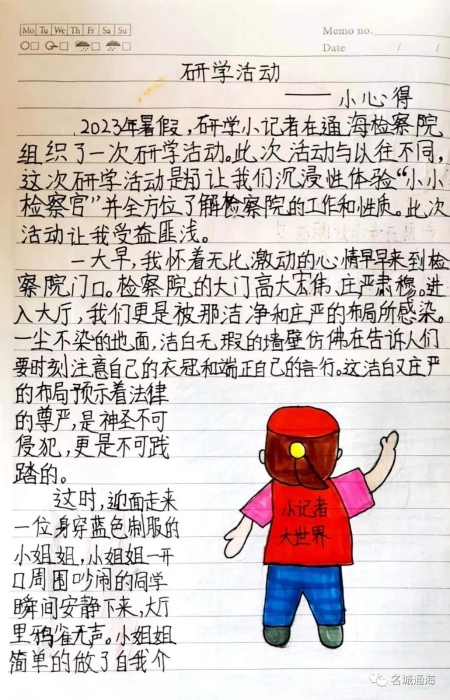 Mo Tu We Th Fr Sa Su
Memo no.
Date / /
研学活动
——小心得
2023年暑假，研学小记者在通海检察院
组织了一次研学活动。此次活动与以往不同，
这次研学活动是让我们沉浸性体验“小小
检察官”并全方位了解检察院的工作和性质。此次
活动让我受益匪浅。
一大早，我怀着无比激动的心情早早来到检
察院门口。检察院的大门高大宏伟、庄严肃穆。进
入大厅，我们更是被那洁净和庄严的布局所感染。
一尘不染的地面，洁白无瑕的墙壁仿佛在告诉人们
要时刻注意自己的衣冠和端正自己的言行。这洁白又庄严
的布局预示着法律
的尊严，是神圣不可
侵犯，更是不可践
踏的。
这时，迎面走来
一位身穿蓝色制服的
小姐姐，小姐姐一开
口周围吵闹的同学
瞬间安静下来，大厅
里鸦雀无声。小姐姐
简单的做了自我介
小记者
大世界
名城通海